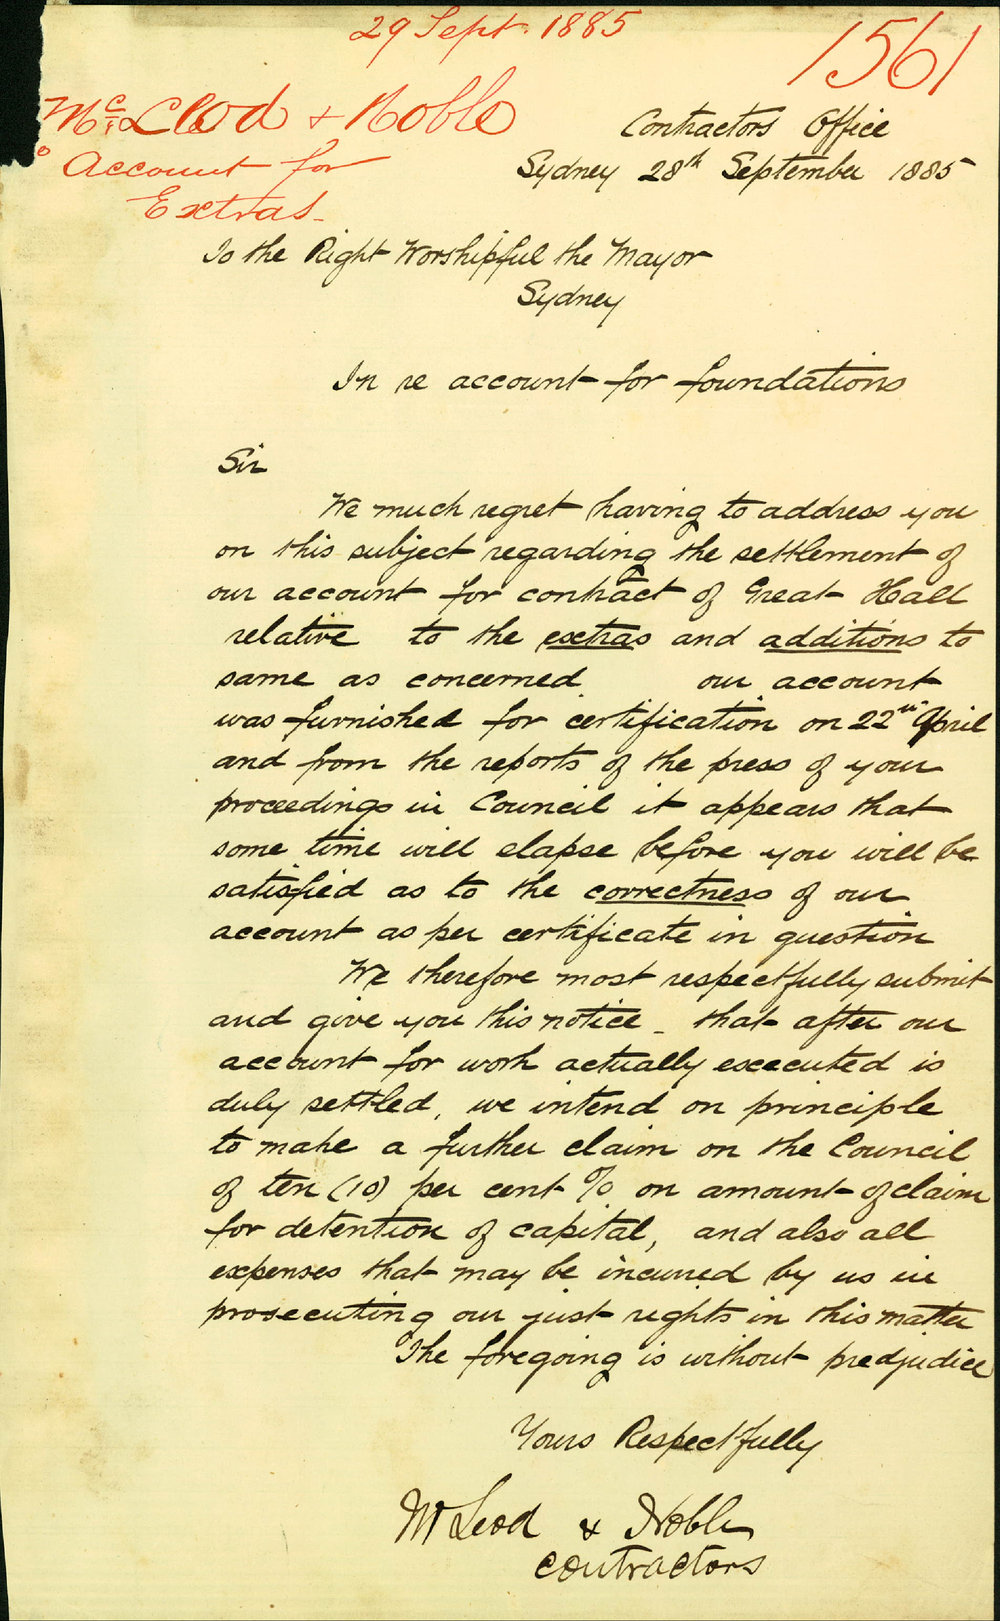 29 Sept. 1885
1561
McLeod & Noble
Account for
Extras.
Contractors Office
Sydney 28th September 1885
To the Right Worshipful the Mayor
Sydney
In re account for foundations
Sir
We much regret having to address you
on this subject regarding the settlement of
our account for contract of Great Hall
relative to the extras and additions to
same as concerned our account
was furnished for certification on 22nd April
and from the reports of the press of your
proceedings in Council it appears that
some time will elapse before you will be
satisfied as to the correctness of our
account as per certificate in question
We therefore most respectfully submit
and give you this notice - that after our
account for work actually excecuted is
duly settled, we intend on principle
to make a further claim on the Council
of ten (10) per cent % on amount of claim
for detention of capital, and also all
expenses that may be incurred by us in
prosecuting our just rights in this matter
The foregoing is without predjudice
Yours Respectfully
McLeod & Noble
Contractors